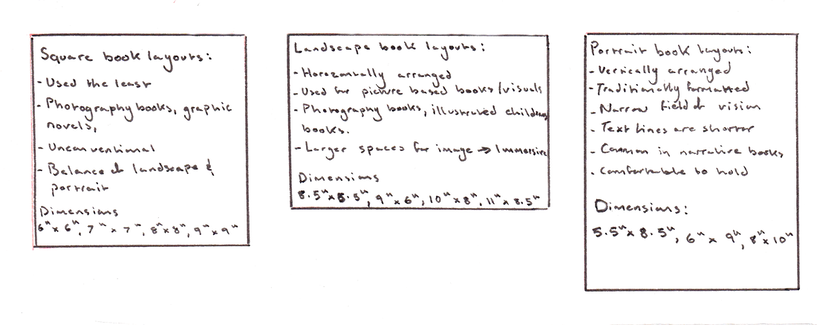 Square book layouts:
- Used the least
- Photography books, graphic
novels,
- Unconventional
- Balance of landscape &
portrait
Dimensions
6"x 6", 7" x 7", 8"x8", 9"x 9"
Landscape book layouts:
- Horozontally arranged
- Used for picture based books/visuals
- Photography books, illustrated childrens
books.
- Larger spaces for image → Immersive
Dimensions
8.5"x5.5", 9"x 6", 10"x 8", 11"x 8.5"
Portrait book layouts:
- Vertically arranged
- Traditionally formatted
- Narrow field of vision
- Text lines are shorter
- Common in narrative books
- Comfortable to hold
Dimensions:
5.5"x 8.5", 6" x 9", 8"x 10"